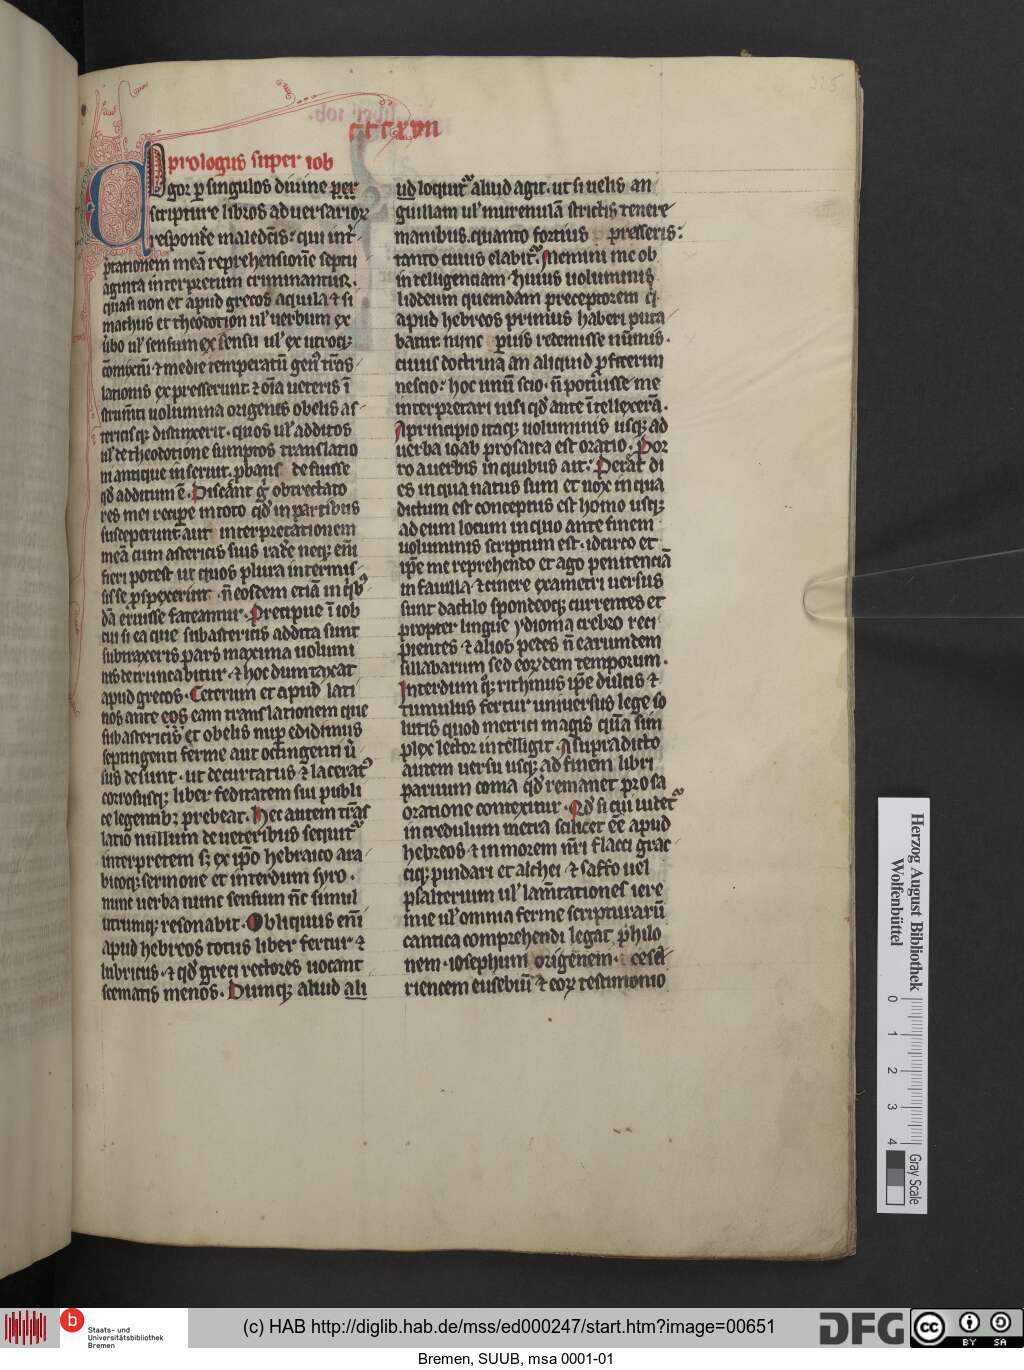 cccxvii
prologus super iob
Cogor p singulos diuine per
scripture libros aduersarioꝝ
respondere maledictis: qui int̄
p̄tationem meā reprehensionē septu
aginta interpretum criminantur.
quasi non et apud grecos aquila ⁊ si
machus et theodotion ul' uerbum ex
ūbo ul' sensum ex sensu ul' ex utroqꝫ
cōmixtū ⁊ medie temperatū gen' trās
lationis expresserint: ⁊ oīa ueteris ī
strum̄ti uolumina origenes obelis as
tericisqꝫ distinxerit. quos ul' additos
ul' de theodotione sumptos translatio
ni antique inseruit. pbans defuisse
qd̄ additum ē. Discant g° obtrectato
res mei recipe in toto qd̄ in partibus
susceperunt aut interpretationem
meā cum astericis suis radē neqꝫ em̄
fieri potest ut quos plura intermis
sisse pspexerint. n̄ eosdem etiā in q'bꝰ
dā errasse fateantur. Precipue ī iob
cui si ea que sub astericis addita sunt
subtraxeris pars maxima uolumi
nis detruncabitur. ⁊ hoc dumtaxat
apud grecos. Ceterum et apud lati
nos ante eos eam translationem que
sub astericis et obelis nup edidimus
septingenti ferme aut octingenti ū
sus desunt. ut decurtatus ⁊ laceratꝰ
corrosusqꝫ liber feditatem sui publi
ce legentibꝫ prebeat. Hec autem trās
latio nullum de ueteribus sequit᷑
interpretem sꝫ ex ip̄o hebraico ara
bicoqꝫ sermone et interdum syro.
nunc uerba nunc sensum nc̄ simul
utrumqꝫ resonabit. Obliquus em̄
apud hebreos totus liber fertur ⁊
lubricus. ⁊ qd̄ greci rectores uocant
scematis menos. Dumqꝫ aliud ali
ud loquit᷑ aliud agit. ut si uelis an
guillam ul' murenulā strictis tenere
manibus. quanto fortius presseris:
tanto cicius elabit᷑. Memini me ob
intelligenciam huius uoluminis
liddeum quemdam preceptorem q̄
apud hebreos primus haberi puta
batur. nunc paruis redemisse nūmis.
cuius doctrina an aliquid pfecerim
nescio: hoc unū scio. n̄ potuisse me
interpretari nisi qd̄ ante ītellexerā.
A principio itaqꝫ uoluminis usqꝫ ad
uerba ioab prosaica est oratio. Por
ro a uerbis in quibus ait: Pereat di
es in qua natus sum et nox in qua
dictum est conceptus est homo usqꝫ
ad eum locum in quo ante finem
uoluminis scriptum est. idcirco et
ip̄e me reprehendo et ago penitenciā
in fauilla ⁊ cinere exametri uersus
sunt dactilo spondeoqꝫ currentes et
propter lingue ydioma crebro reci
pientes ⁊ alios pedes n̄ earumdem
sillabarum sed eorꝫdem temporum.
Interdum q̄ꝫ rithimus ip̄e dulcis ⁊
tumulus fertur uniuersus lege so
lutis quod metrici magis quā sim
plex lector intelligit. A supradicto
autem uersu usqꝫ ad finem libri
paruum coma qd̄ remanet prosa
oratione contexitur. Qd̄ si cui uidet᷑
incredulum metra scilicet eē apud
hebreos ⁊ in morem nr̄i flacci grae
ciqꝫ pindari et alchei ⁊ saffo uel
psalterium ul' lam̄tationes iere
mie ul' omnia ferme scripturarū
cantica comprehendi legat philo
nem. iosephum origenem. cesa
riencem eusebiū ⁊ eoꝝ testimonio
Herzog August Bibliothek
Wolfenbüttel
0 1 2 3 4
Gray Scale
b
Staats- und
Universitätsbibliothek
Bremen
(c) HAB http://diglib.hab.de/mss/ed000247/start.htm?image=00651
DFG
cc
BY SA
Bremen, SUUB, msa 0001-01